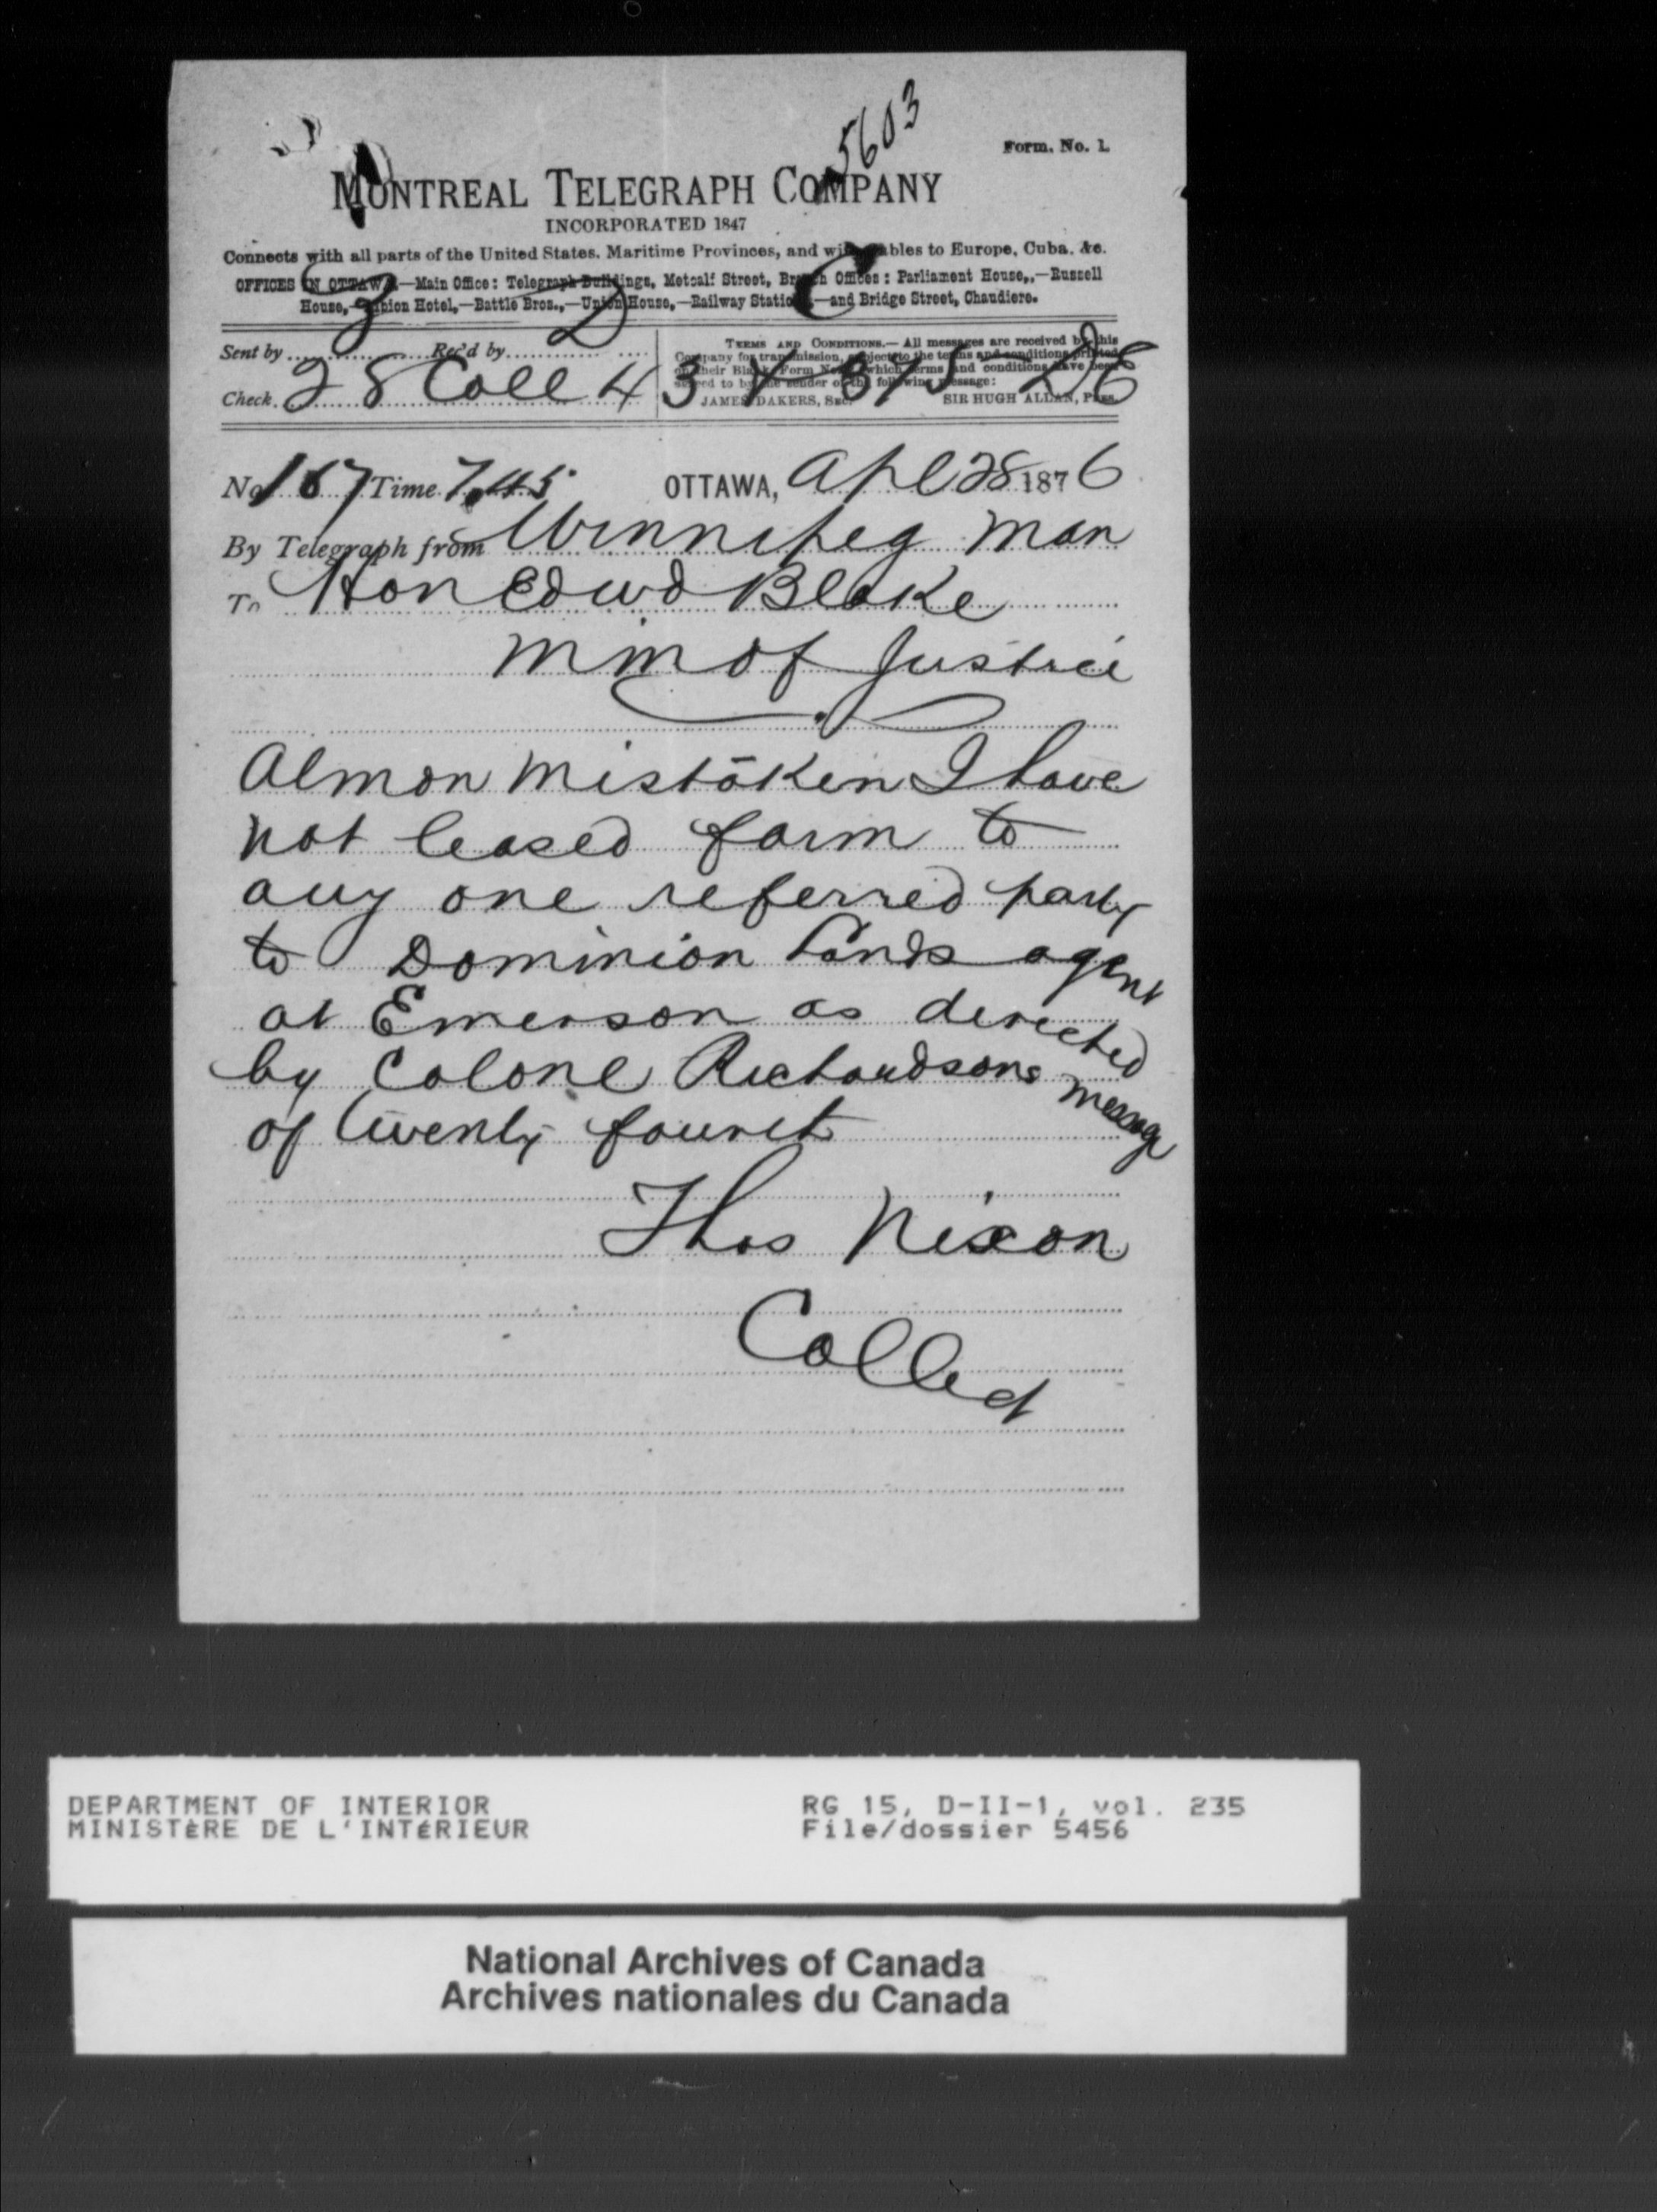 5603
Form. No. 1.
MONTREAL TELEGRAPH COMPANY
INCORPORATED 1847
Connects with all parts of the United States, Maritime Provinces, and with Cables to Europe, Cuba, &c.
OFFICES IN OTTAWA.—Main Office: Telegraph Buildings, Metcalf Street, Branch Offices: Parliament House,,—Russell
House,—Albion Hotel,—Battle Bros.,—Union House,—Railway Station,—and Bridge Street, Chaudiere.
Sent by Rec'd by
TERMS AND CONDITIONS.—All messages are received by this
Company for transmission, subject to the terms and conditions printed
on their Blank Form No. which terms and conditions have been
agreed to by the sender of the following message:
JAMES DAKERS, Sec. SIR HUGH ALLAN, Pres.
Check 28 Coll 4 DE
No 167 Time 7.45 OTTAWA, Apl 28 1876
By Telegraph from Winnipeg Man
To Hon Edwd Blake
Min of Justice
Almon mistaken I have
not leased farm to
any one referred party
to Dominion Lands agent
at Emerson as directed
by Colonel Richardsons message
of twenty fourth
Thos Nixon
Collect
DEPARTMENT OF INTERIOR RG 15, D-II-1, vol. 235
MINISTÈRE DE L'INTÉRIEUR File/dossier 5456
National Archives of Canada
Archives nationales du Canada